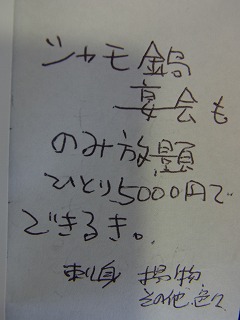 シャモ鍋
宴会も
のみ放題
ひとり5000円で
できるき。
刺身 揚物
その他、色々